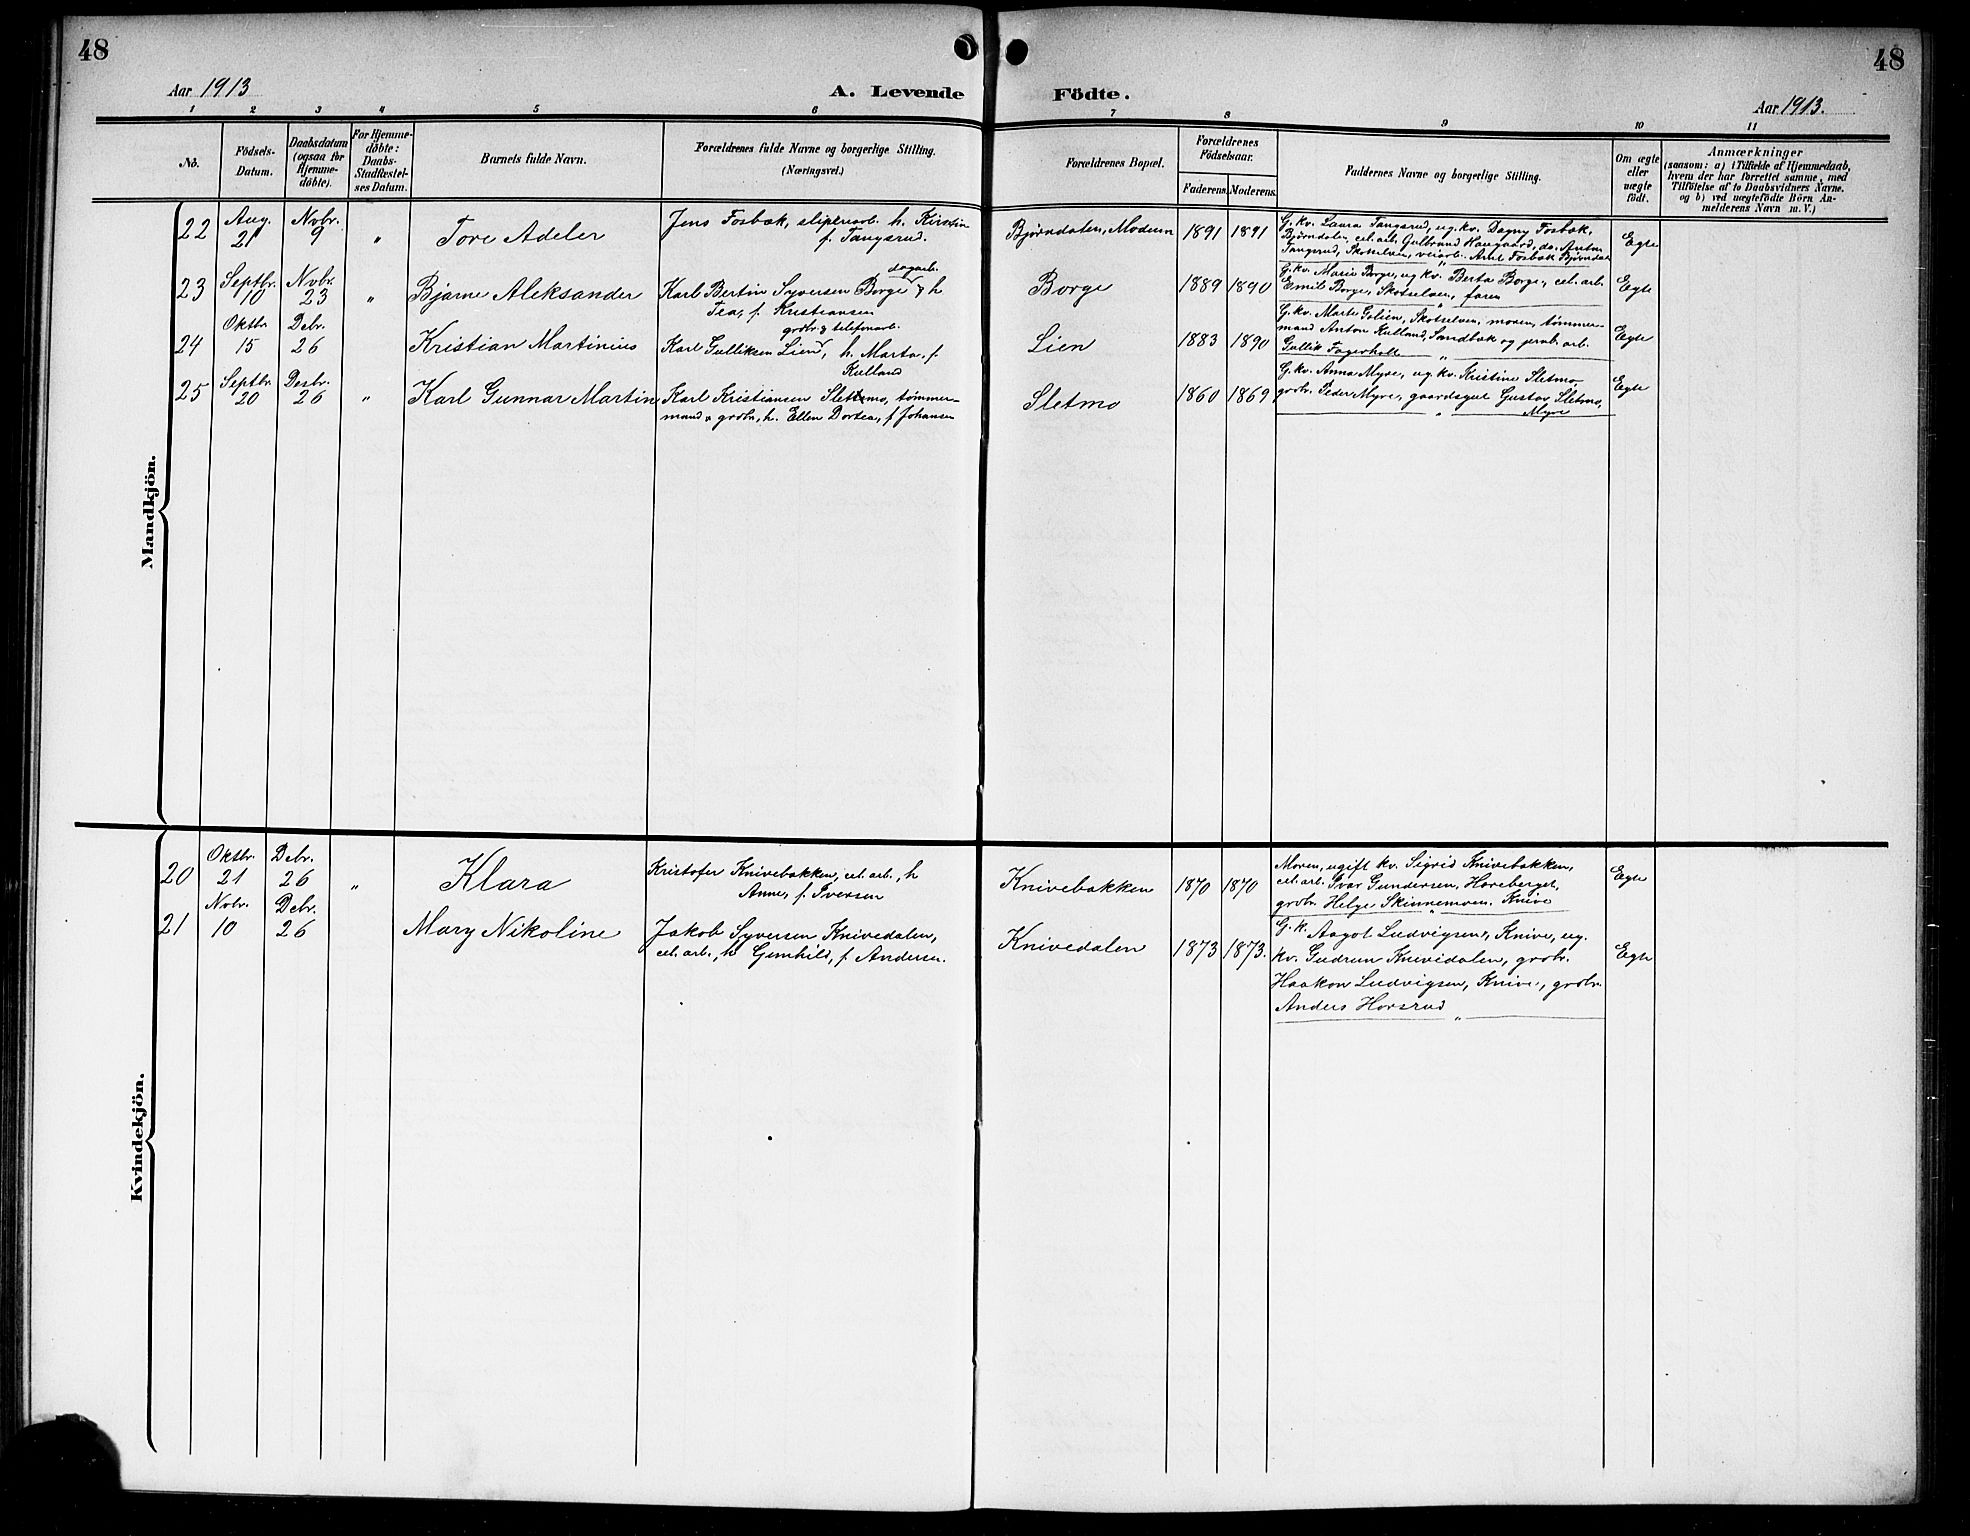 48
48
Aar 1913
A. Levende
Födte.
Aar 1913.
1 2 3 4 5 6 7 8 9 10 11
No.
Födsels-
Datum.
Daabsdatum
(ogsaa for
Hjemme-
döbte).
For Hjemme-
döbte:
Daabs-
Stadfæstel-
ses Datum.
Barnets fulde Navn.
Forældrenes fulde Navne og borgerlige Stilling.
(Næringsvei.)
Forældrenes Bopæl.
Forældrenes
Födselsaar.
Faderens. Moderens.
Faddernes Navne og borgerlige Stilling.
Om ægte
eller
uægte
födt.
Anmærkninger
(saasom: a) i Tilfælde af Hjemmedaab,
hvem der har forrettet samme, med
Tilföielse af to Daabsvidners Navne.
og b) ved uægtefödte Börn An-
melderens Navn m. V.)
Mandkjön.
22 Aug. 21 Novbr. 9 " Tore Adeler
Jens Fosbæk, sliperiarb. h. Kirstin
f. Tangsrud.
Bjørndalen, Modum 1891 1891
G. kv. Laura Tangsrud, ug. kv. Dagny Fosbæk,
Bjørndalen, cel. arb. Gulbrand Haugaard, do. Anton
Tangsrud, Skotselven, veiarb. Arne Fosbæk Bjørndal
Egte
23 Septbr. 10 Novbr. 23 " Bjarne Aleksander
dagarb.
Karl Bertin Syversen Borge & h
Tea, f. Kristiansen
Borge 1889 1890
G. kv. Marie Borge, ug kv. Berta Borge, cel. arb.
Emil Borge, Skotselven, faren
Egte
24 Oktbr. 15 Debr. 26 Kristian Martinius
grdbr. & telefonarb.
Karl Gulliksen Lien, h. Marta, f.
Kulland
Lien 1883 1890
G. kv. Marte Golien, Skotselven, moren, tømmer-
mand Anton Kulland, Sandbæk og jernb. arb.
Gullik Fagerholt "
Egte
25 Septbr. 20 Desbr. 26 " Karl Gunnar Martin
Karl Kristiansen Sletmo, tømmer-
mand & grdbr., h. Ellen Dortea, f Johansen
Sletmo 1860 1869
G. kv. Anna Myre, ug. kv. Kristine Sletmo
grdbr. Peder Myre, gaardsgut Gustav Sletmo,
" Myre
Egte
Kvindekjön.
20 Oktbr. 21 Debr. 26 " Klara
Kristofer Knivebakken, cel. arb., h
Anne, f. Iversen
Knivebakken 1870 1870
Moren, ugift kv. Sigrid Knivebakken,
cel. arb. Ivar Gundersen, Horeberget,
grdbr. Helge Skinnemoen. Knive
Egte
21 Novbr. 10 Debr. 26 Mary Nikoline
Jakob Syversen Knivedalen,
cel. arb., h Gunhild, f. Andersen.
Knivedalen 1873 1873.
G. k. Aagot Ludvigsen, Knive, ug.
kv. Gudrun Knivedalen, grdbr.
Haakon Ludvigsen, Knive, grdbr.
Anders Horsrud "
Egte